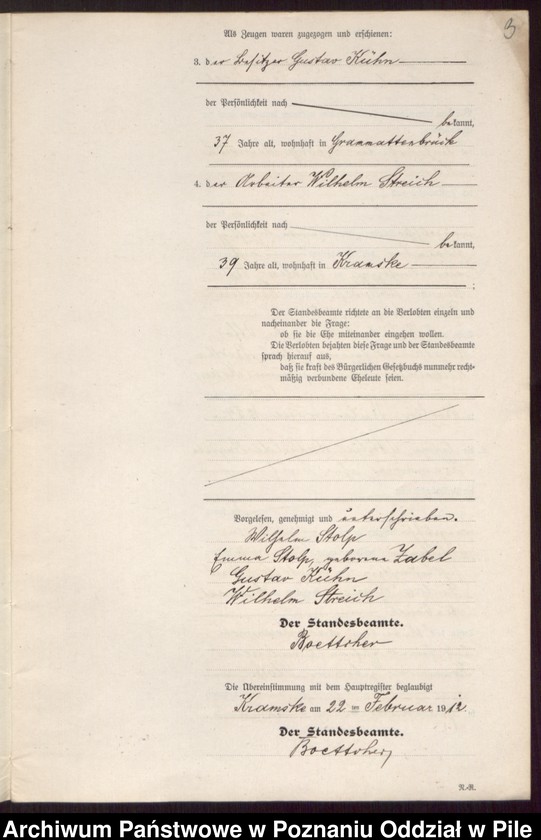 3
Als Zeugen waren zugezogen und erschienen:
3. der Besitzer Gustav Kühn
der Persönlichkeit nach
bekannt,
37 Jahre alt, wohnhaft in Grammattenbrück
4. der Arbeiter Wilhelm Streich
der Persönlichkeit nach
bekannt,
39 Jahre alt, wohnhaft in Kramske
;
Der Standesbeamte richtete an die Verlobten einzeln und
nacheinander die Frage:
ob sie die Ehe miteinander eingehen wollen.
Die Verlobten bejahten diese Frage und der Standesbeamte
sprach hierauf aus,
daß sie kraft des Bürgerlichen Gesetzbuchs nunmehr recht-
mäßig verbundene Eheleute seien.
Vorgelesen, genehmigt und unterschrieben.
Wilhelm Stolp
Emma Stolp, geborene Zabel
Gustav Kühn
Wilhelm Streich
Der Standesbeamte.
Boettcher
Die Übereinstimmung mit dem Hauptregister beglaubigt
Kramske am 22 ten Februar 1912.
Der Standesbeamte.
Boettcher
N.-R.
Archiwum Państwowe w Poznaniu Oddział w Pile